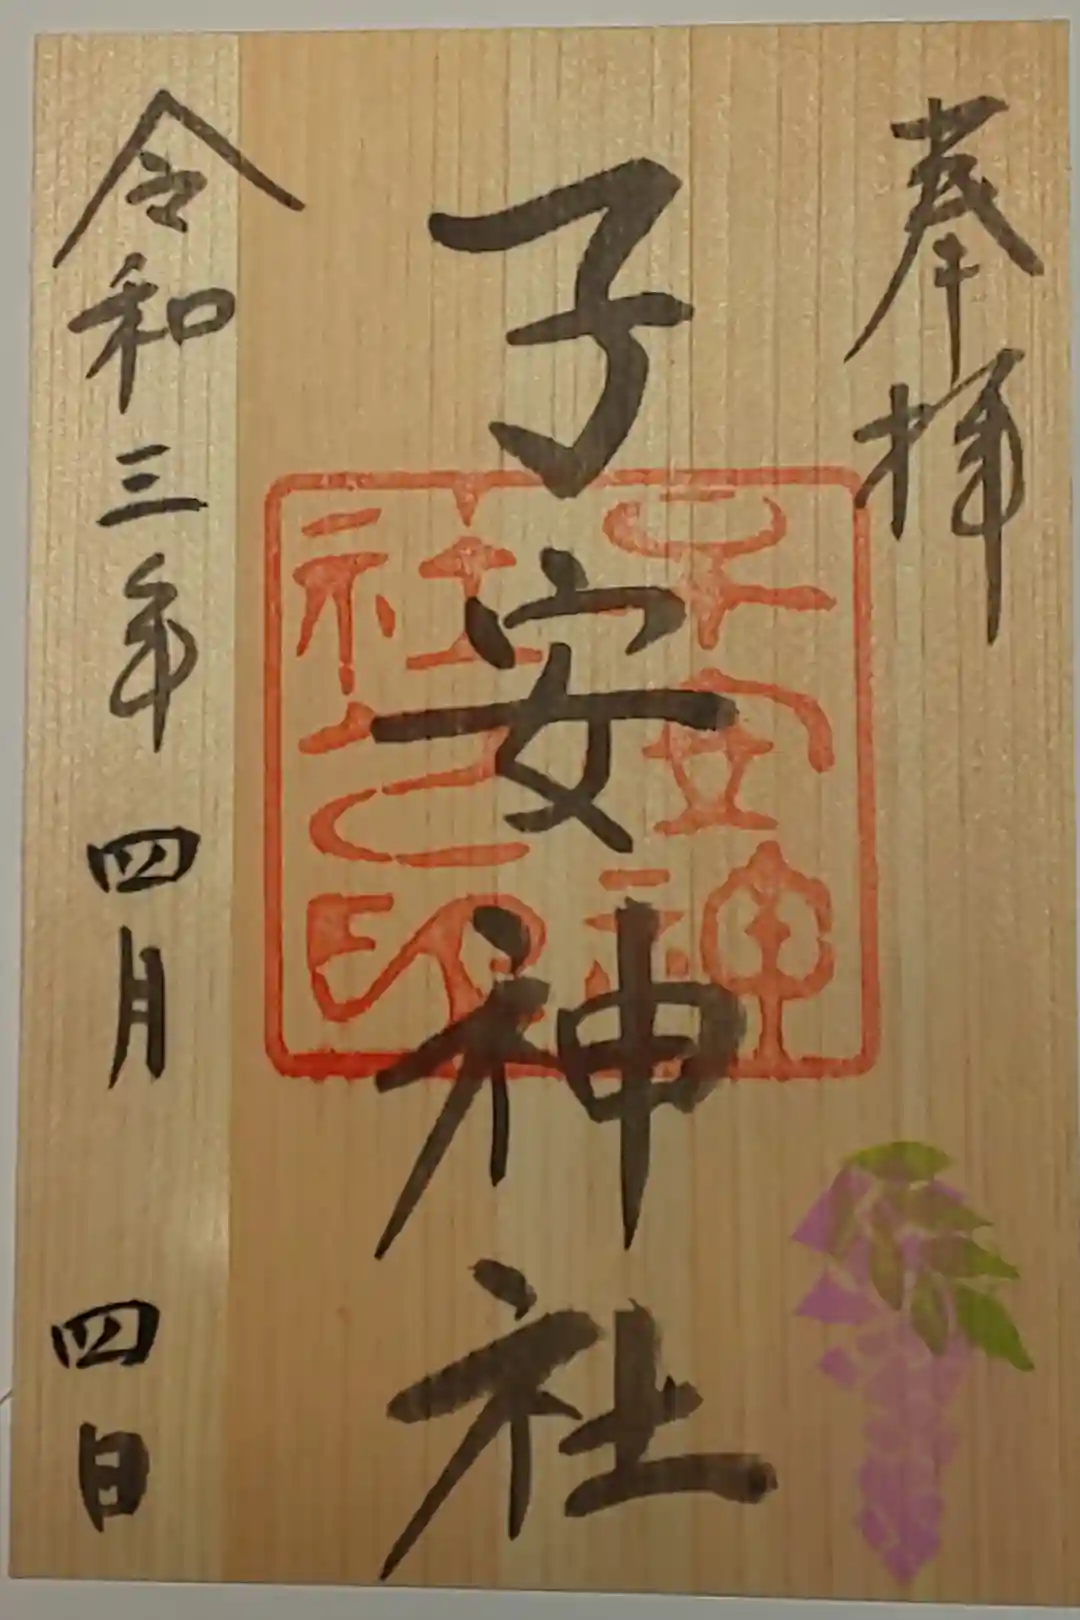 奉拝
子安神社
子安神社之印
令和三年四月四日